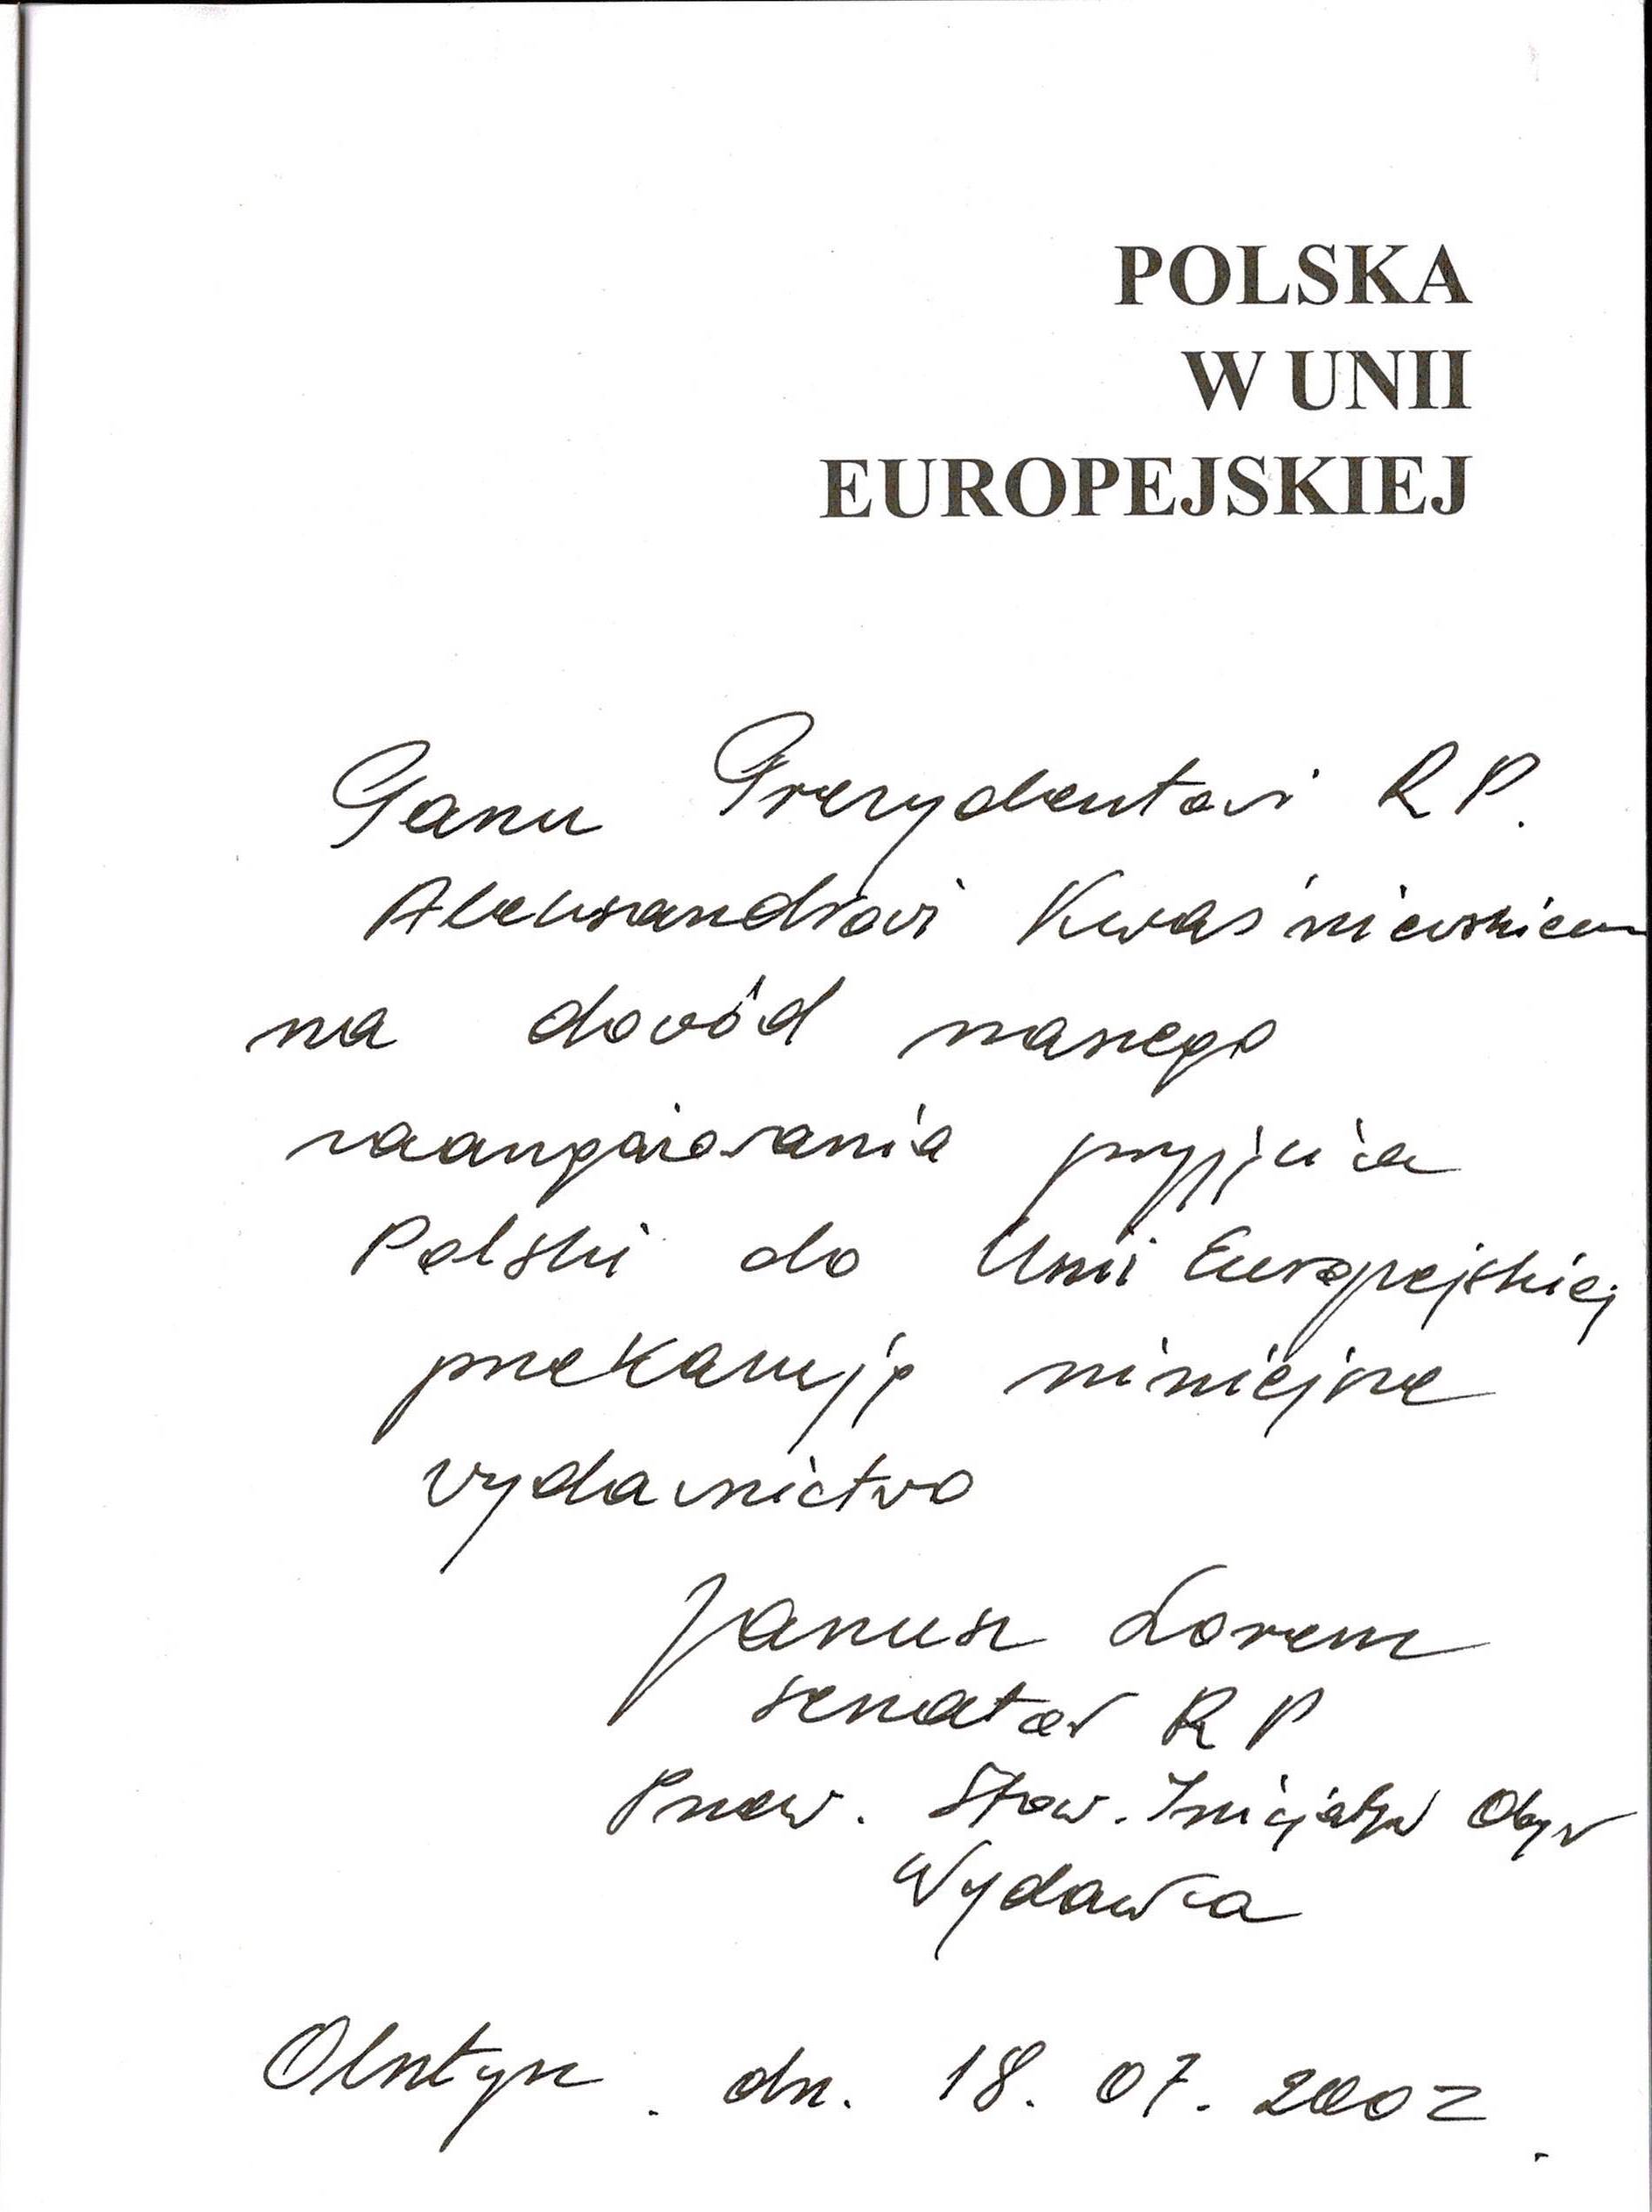 POLSKA
W UNII
EUROPEJSKIEJ
Panu Prezydentowi RP.
Aleksandrowi Kwaśniewskiemu
na dowód naszego
zaangażowania przyjęcia
Polski do Unii Europejskiej
przekazuję niniejsze
wydawnictwo
Janusz Lorenz
senator RP
Przew. Stow. Inicjatyw Obyw
Wydawca
Olsztyn. dn. 18. 07. 2002.